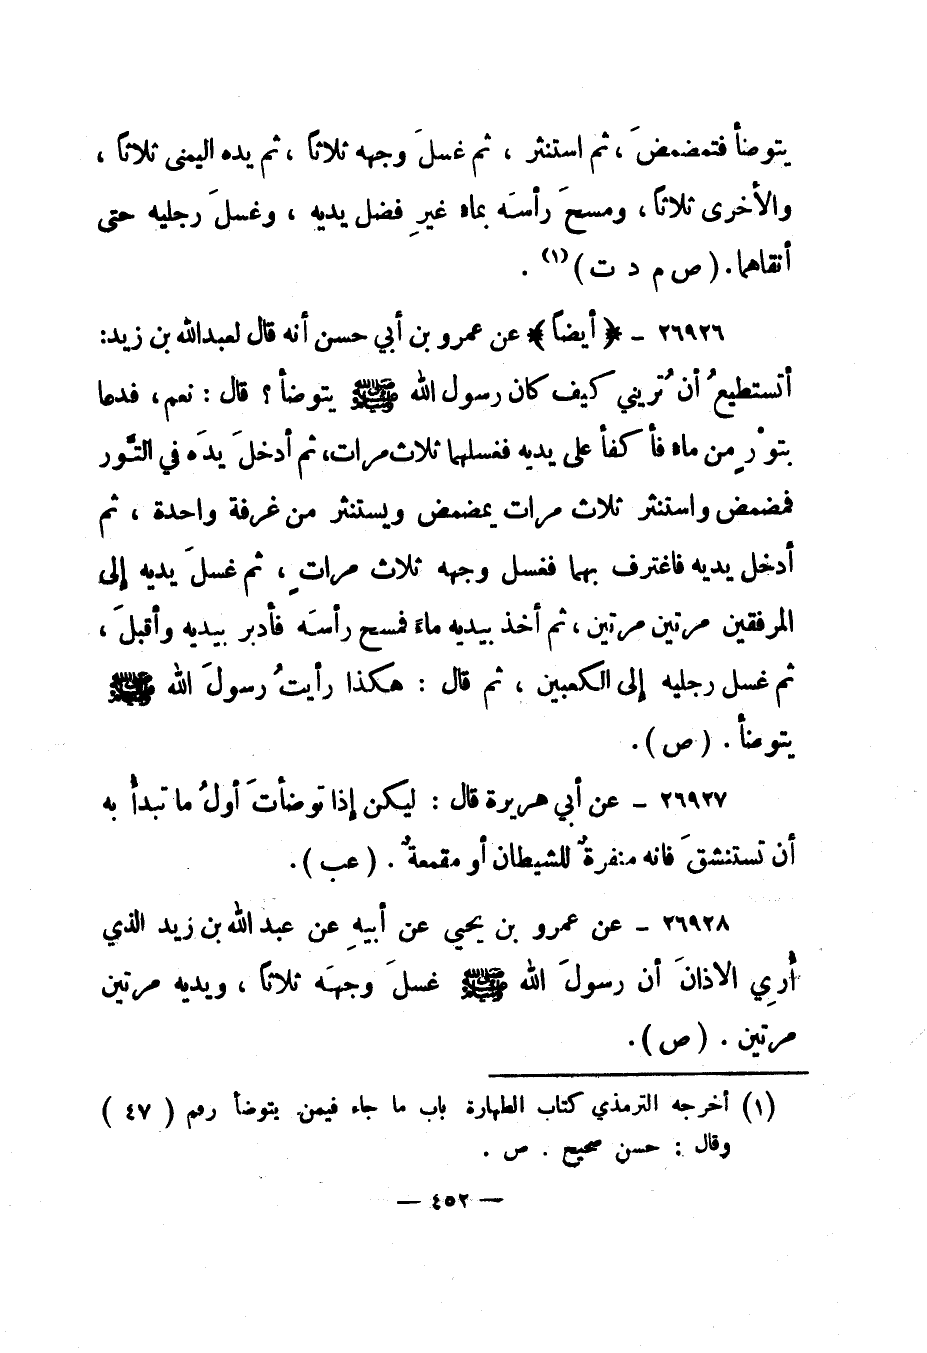 يتوضأ فتمضمضَ ، ثم استنثر ، ثم غسلَ وجهه ثلاثاً ، ثم يده اليمنى ثلاثاً ،
والأخرى ثلاثاً ، ومسحَ رأسَه بماء غيرِ فضل يديه ، وغسلَ رجليه حتى
أنقاهما. ( ص م د ت ) (١) .
٢٦٩٢٦ ـ ﴿ أيضاً ﴾ عن عمرو بن أبي حسن أنه قال لعبدالله بن زيد:
أتستطيعُ أن تُريني كيف كان رسول الله ﷺ يتوضأ ؟ قال : نعم ، فدعا
بتوْرٍ من ماء فأكفأ على يديه فغسلهما ثلاث مرات، ثم أدخلَ يدَه في التَّور
فمضمض واستنثر ثلاث مرات يمضمض ويستنثر من غرفة واحدة ، ثم
أدخل يديه فاغترف بهما فغسل وجهه ثلاث مراتٍ ، ثم غسلَ يديه إلى
المرفقين مرتين مرتين ، ثم أخذ بيديه ماءً فمسح رأسَه فأدبر بيديه وأقبلَ ،
ثم غسل رجليه إلى الكعبين ، ثم قال : هكذا رأيتُ رسولَ الله ﷺ
يتوضأ . ( ص ) .
٢٦٩٢٧ ـ عن أبي هريرة قال : ليكن إذا توضأتَ أولُ ما تبدأُ به
أن تستنشقَ فانه منفرةٌ للشيطان أو مقمعةٌ . ( عب ) .
٢٦٩٢٨ ـ عن عمرو بن يحيي عن أبيهِ عن عبد الله بن زيد الذي
أُرِي الاذانَ أن رسولَ الله ﷺ غسلَ وجهَه ثلاثاً ، ويديه مرتين
مرتين . ( ص ) .
(١) أخرجه الترمذي كتاب الطهارة باب ما جاء فيمن يتوضأ رقم ( ٤٧ )
وقال : حسن صحيح . ص .
— ٤٥٢ —